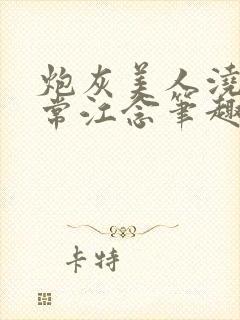 炮灰美人浇
常江念笔趣
卡特